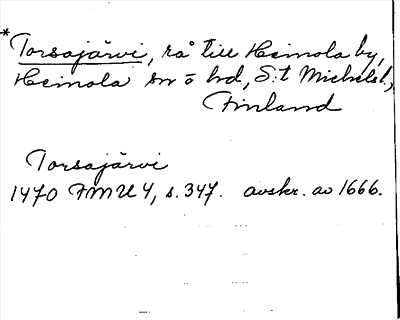 * Torsajärvi, rå till Heinola by,
Heinola sn o hd, S:t Michelsl.,
Finland
Torsajärvi
1470 FMU 4, s. 347. avskr. av 1666.